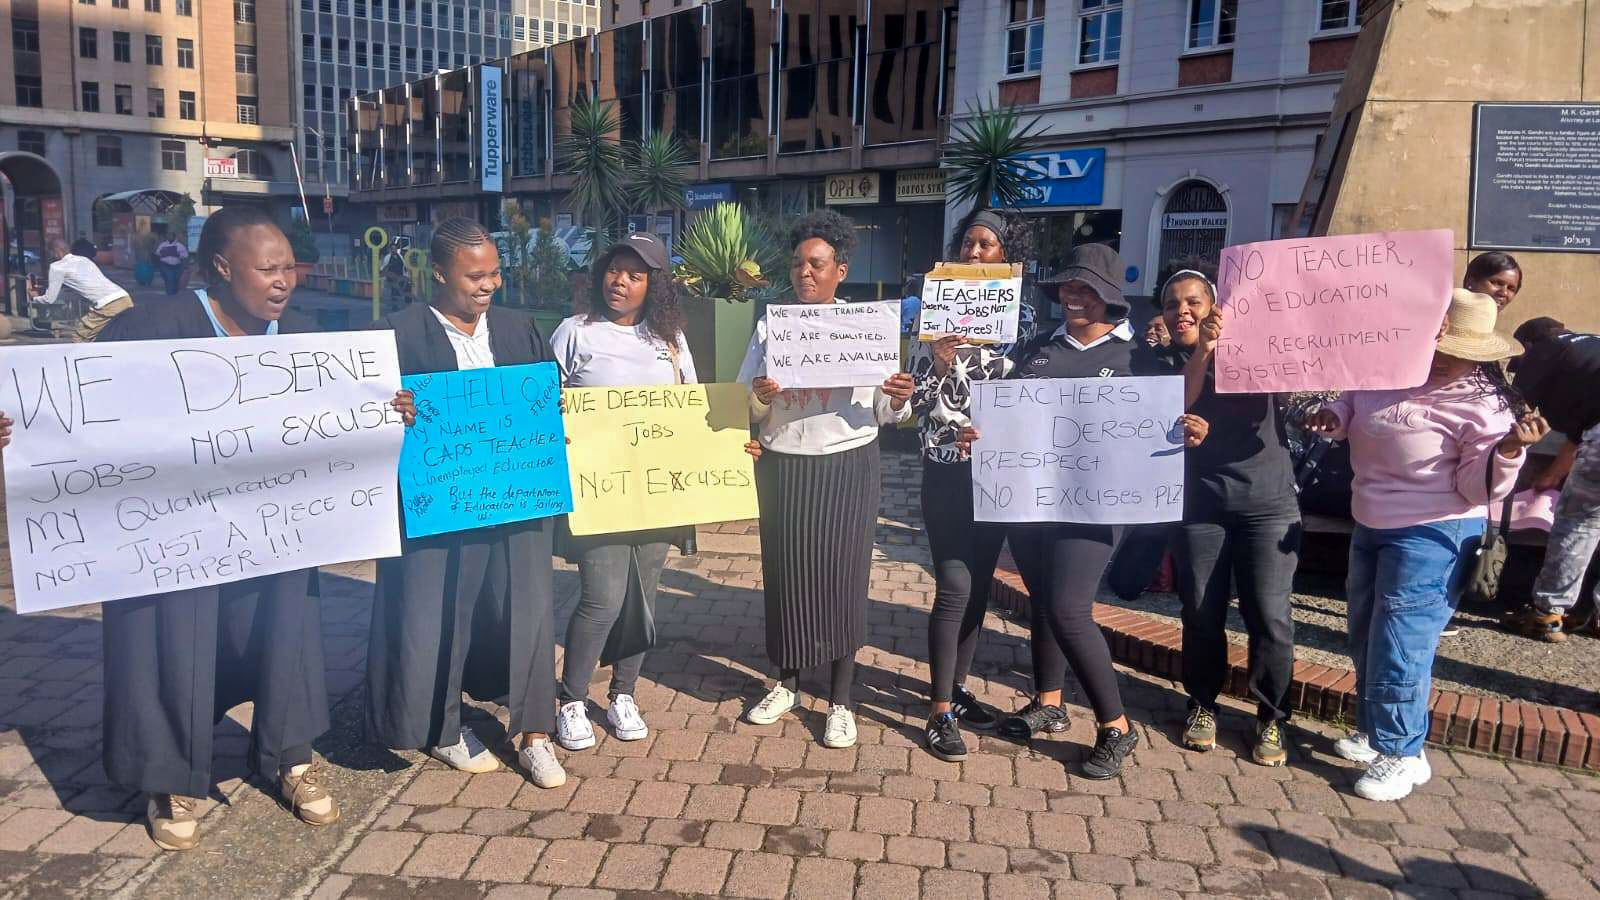 WE DESERVE
JOBS NOT EXCUSE
My Qualification is
NOT JUST A PIECE OF
PAPER!!!
HELLO
FRIEND
MY NAME IS
CAPS TEACHER
Unemployed Educator
But the department
of Education is failing
us
WE DESERVE
JOBS
NOT EXCUSES
WE ARE TRAINED.
WE ARE QUALIFIED.
WE ARE AVAILABLE
TEACHERS
Deserve JOBS NOT
Just Degrees!!
TEACHERS
DERSEVE
RESPECT
NO EXCUSES PLZ
NO TEACHER,
NO EDUCATION
FIX RECRUITMENT
SYSTEM
Tupperware
TO LET
Standard Bank
OPH
100 FOX STREET
stv
THUNDER WALKER
M. K. Gandhi
Attorney at La
Joburg